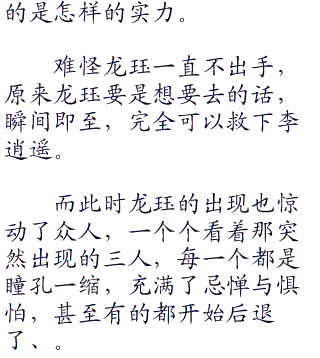 的是怎样的实力。
难怪龙珏一直不出手，
原来龙珏要是想要去的话，
瞬间即至，完全可以救下李
逍遥。
而此时龙珏的出现也惊
动了众人，一个个看着那突
然出现的三人，每一个都是
瞳孔一缩，充满了忌惮与惧
怕，甚至有的都开始后退
了、。